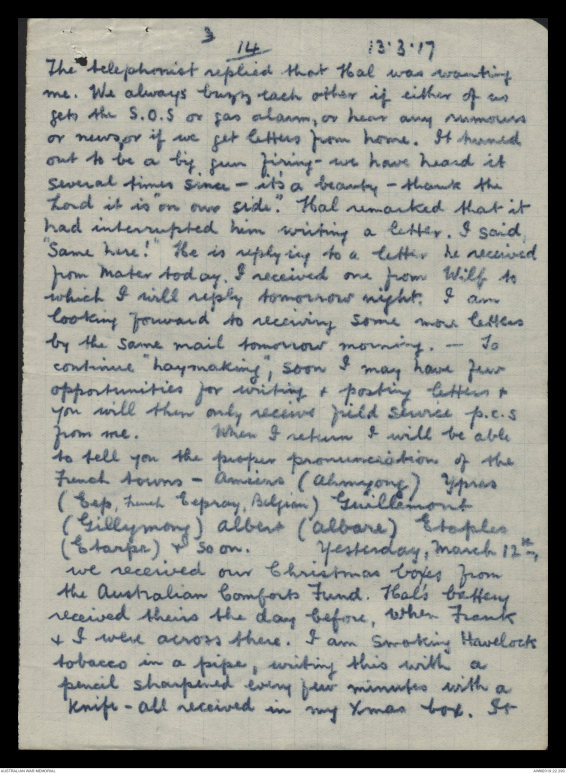 3
14 13.3.17
The telephonist replied that Hal was wanting
me. We always buzz each other if either of us
gets the S.O.S or gas alarm, or hear any rumours
or news, or if we get letters from home. It turned
out to be a big gun firing - we have heard it
several times since - it's a beauty - thank the
Lord it is "on our side". Hal remarked that it
had interrupted him writing a letter. I said,
"Same here!" He is replying to a letter he received
from Mater today. I received one from Wilf to
which I will reply tomorrow night. I am
looking forward to receiving some more letters
by the same mail tomorrow morning. — To
continue "haymaking", soon I may have few
opportunities for writing & posting letters &
you will then only receive field service p.c.s
from me. When I return I will be able
to tell you the proper pronunciation of the
French towns - Amiens (Ahmyong) Ypres
(Eep, French Eepray, Belgian) Guillemont
(Gillymong) Albert (Albare) Etaples
(Etarpe) & so on. Yesterday, March 12th,
we received our Christmas boxes from
the Australian Comforts Fund. Hal's battery
received theirs the day before, when Frank
& I were across there. I am smoking Havelock
tobacco in a pipe, writing this with a
pencil sharpened every few minutes with a
knife - all received in my Xmas box. It
AUSTRALIAN WAR MEMORIAL